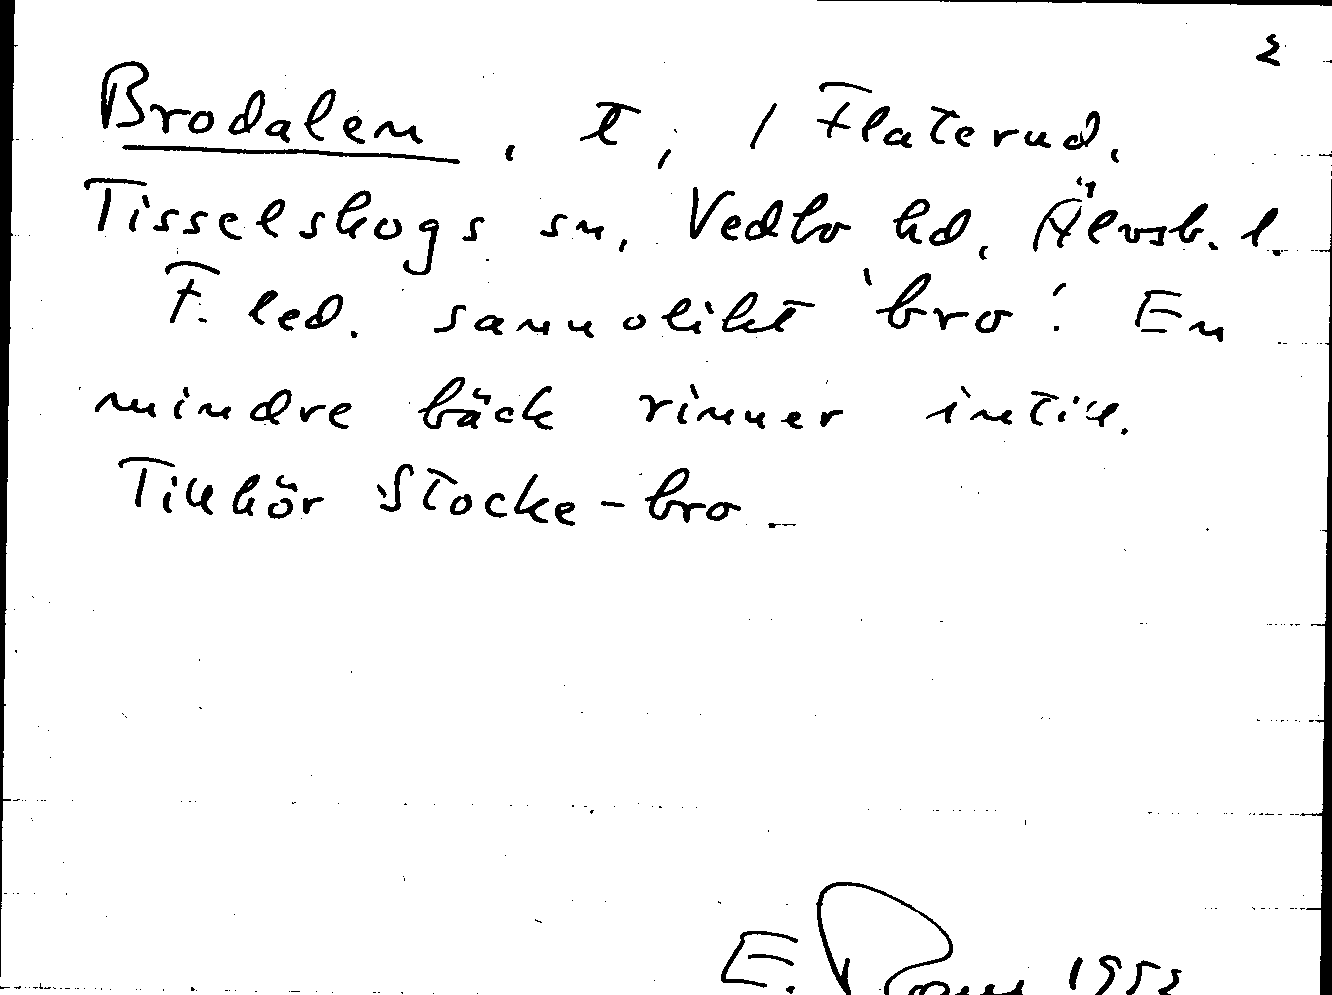 2
Brodalen, t, / Flaterud,
Tisselskogs sn, Vedbo hd, Älvsb. l.
F. led. sannolikt 'bro'. En
mindre bäck rinner intill.
Tillhör Stocke-bro.
E. 1952